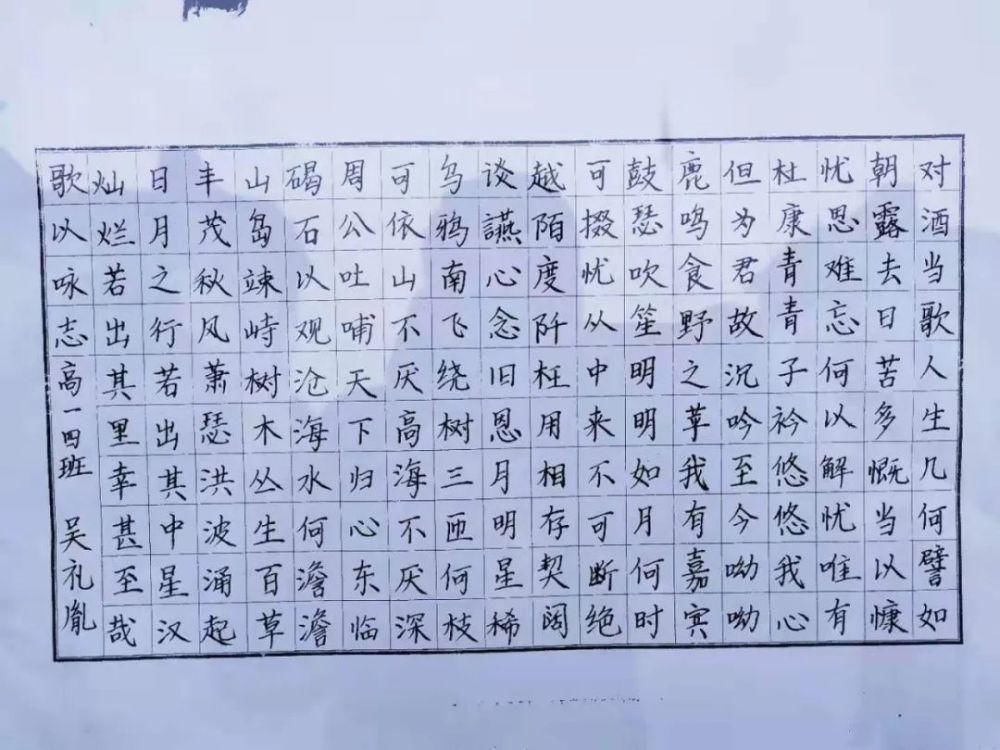 对酒当歌人生几何譬如
朝露去日苦多慨当以慷
忧思难忘何以解忧唯有
杜康青青子衿悠悠我心
但为君故沉吟至今呦呦
鹿鸣食野之苹我有嘉宾
鼓瑟吹笙明明如月何时
可掇忧从中来不可断绝
越陌度阡枉用相存契阔
谈讌心念旧恩月明星稀
乌鸦南飞绕树三匝何枝
可依山不厌高海不厌深
周公吐哺天下归心东临
碣石以观沧海水何澹澹
山岛竦峙树木丛生百草
丰茂秋风萧瑟洪波涌起
日月之行若出其中星汉
灿烂若出其里幸甚至哉
歌以咏志高一四班 吴礼胤